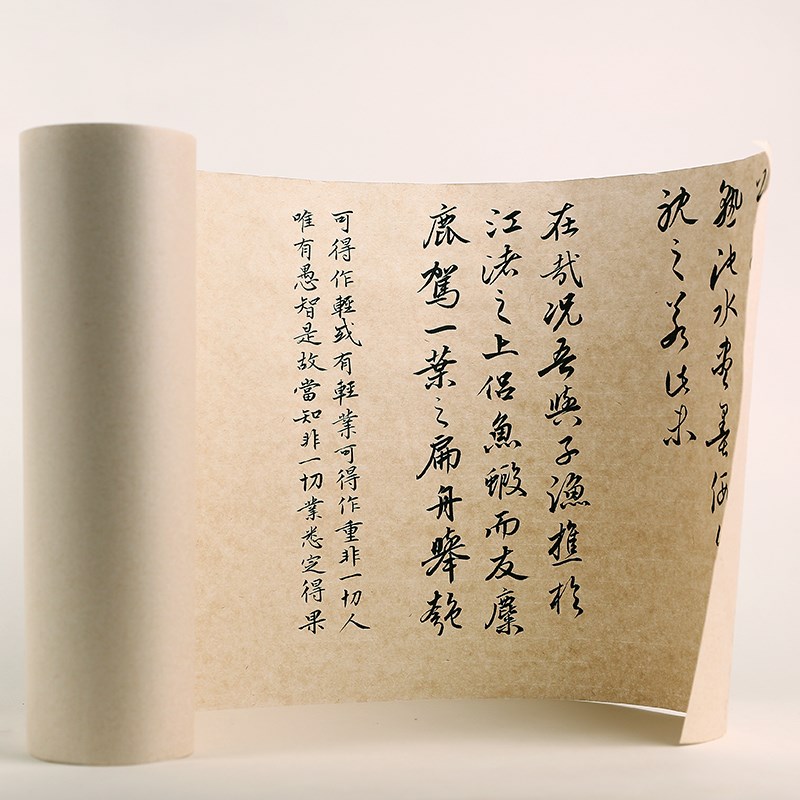 熟池水盡墨假
耽之若此未
在哉況吾與子漁樵於
江渚之上侶魚蝦而友麋
鹿駕一葉之扁舟舉匏
可得作輕或有輕業可得作重非一切人
唯有愚智是故當知非一切業悉定得果